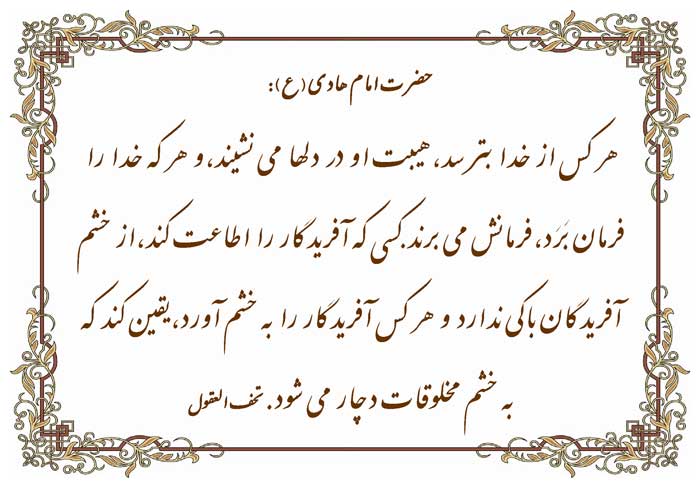 حضرت امام هادی(ع):
هر کس از خدا بترسد، هیبت او در دلها می نشیند، و هر که خدا را
فرمان بَرَد، فرمانش می برند. کسی که آفریدگار را اطاعت کند، از خشم
آفریدگان باکی ندارد و هر کس آفریدگار را به خشم آورد، یقین کند که
به خشم مخلوقات دچار می شود. تحف العقول